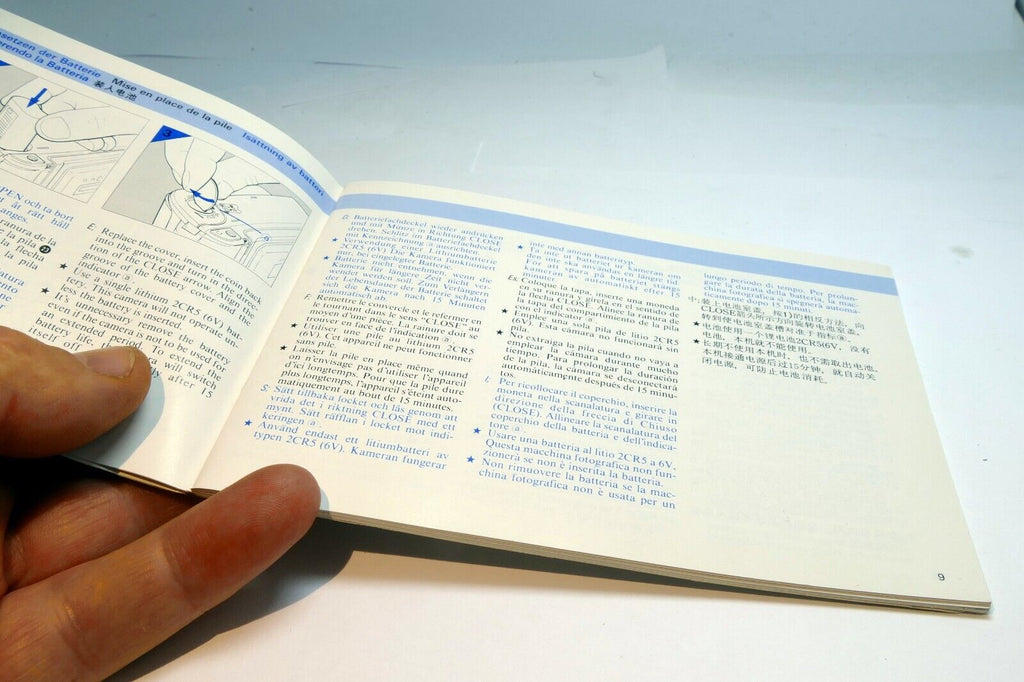 setzen der Batterie Mise en place de la pile Isättning av batteri
rendo la Batteria 装入电池
3
PEN och ta bort
åt rätt håll
anges.
ranura de la
la pila
la flecha
la pila
E: Replace the cover, insert the coin back
into the groove and turn in the direc-
tion of the CLOSE arrow. Align the
groove of the battery cover and the
indicator ⓐ.
★ Use a single lithium 2CR5 (6V) bat-
tery. This camera will not operate un-
less the battery is inserted.
★ It's unnecessary remove the battery
even if the camera is not to be used for
an extended period. To extend
battery life, the will switch
itself off after 15
D: Batteriefachdeckel wieder andrücken
und mit Münze in Richtung CLOSE
drehen. Schlitz im Batteriefachdeckel
mit Kennzeichnung ⓐ ausrichten.
★ Verwendung einer Lithiumbatterie
2CR5 (6V). Die Kamera funktioniert
nur bei eingelegter Batterie.
★ Batterie nicht entnehmen, wenn die
Kamera für längere Zeit nicht ver-
wendet werden soll. Zum Verlängern
der Lebensdauer der Batterie schaltet
sich die Kamera nach 15 Minuten
automatisch ab.
F: Remettre le cercle et le refermer en
tournant dans le sens "CLOSE" au
moyen d'une pièce. La rainure doit se
trouver en face de l'indication ⓐ.
★ Utiliser une pile au lithium 2CR5
(6V). Cet appareil ne peut fonctionner
sans pile.
★ Laisser la pile en place même quand
on ne pense pas d'utiliser l'appareil
d'ici longtemps. Pour que la pile dure
plus longtemps, l'appareil s'éteint auto-
matiquement au bout de 15 minutes.
S: Sätt tillbaka locket och lås genom att
vrida det i riktning CLOSE med ett
mynt. Sätt räfflan i locket mot indi-
keringen ⓐ.
★ Använd endast ett litiumbatteri av
typen 2CR5 (6V). Kameran fungerar
inte med annan batterityp.
★ Ta inte ut batteriet ur kameran om
den inte ska användas under en tid.
För att spara på batteriet stängs
kameran av automatiskt efter 15
minuter.
Es: Coloque la tapa, inserte una moneda
en su ranura y gírela en el sentido de
la flecha CLOSE. Alinee la ranura de
la tapa del compartimento de la pila
con el indicador ⓐ.
★ Emplee una sola pila de litio 2CR5
(6V). Esta cámara no funcionará sin
la pila.
★ No extraiga la pila cuando no vaya a
emplear la cámara durante mucho
tiempo. Para prolongar la duración
de la pila, la cámara se desconectará
automáticamente después de 15 minu-
tos.
I: Per ricollocare il coperchio, inserire la
moneta nella scanalatura e girare in
direzione della freccia di Chiuso
(CLOSE). Allineare la scanalatura del
coperchio della batteria e dell'indica-
tore ⓐ.
★ Usare una batteria al litio 2CR5 a 6V.
Questa macchina fotografica non fun-
zionerà se non è inserita la batteria.
★ Non rimuovere la batteria se la mac-
china fotografica non è usata per un
lungo periodo di tempo. Per prolun-
gare la durata della batteria, la mac-
china fotografica si spegnerà automa-
ticamente dopo 15 minuti.
中: 装上电池室盖,按1)的相反方法,向
CLOSE箭头所示方向旋转电池室盖,
转到使电池室盖槽对准于指标ⓐ。
★ 电池使用一个锂电池2CR56V。没有
电池,本机就不能使用。
★ 长期不使用本机时,也不需取出电池。
本机接通电源后过15分钟,就自动关
闭电源,可防止电池消耗。
9